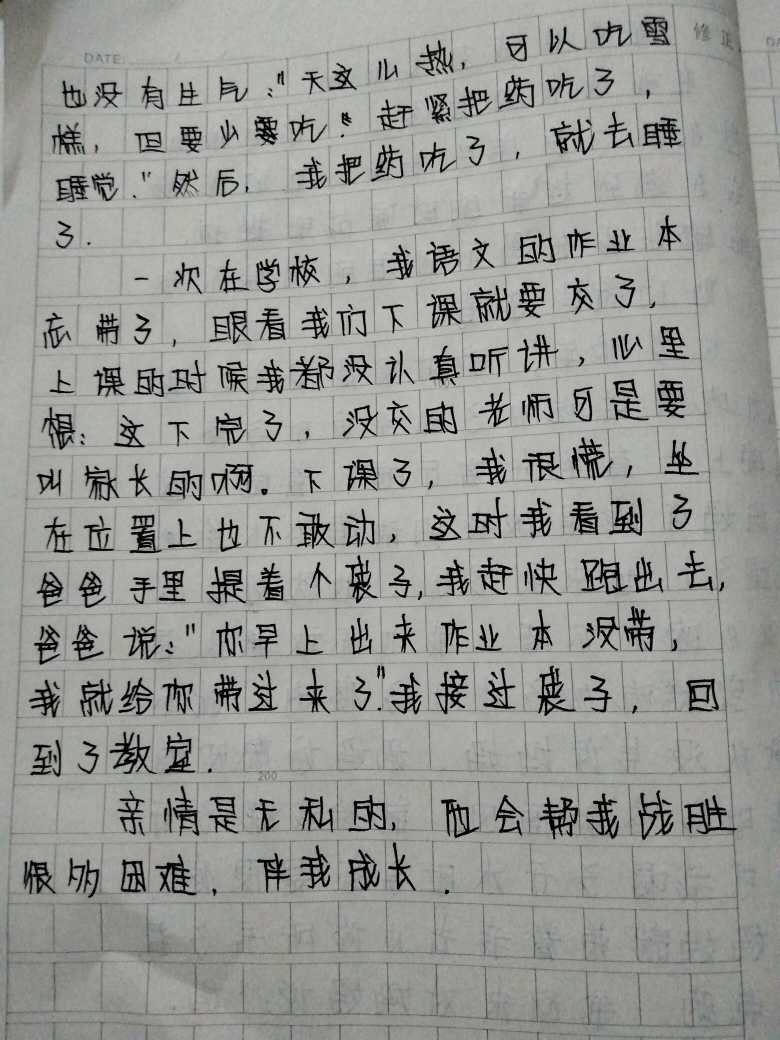 DATE
修正
也没有生气："天这么热，可以吃雪
糕，但要少要吃。" 赶紧把药吃了，
睡觉."然后，我把药吃了，就去睡
了.
一次在学校，我语文的作业本
忘带了，眼看我们下课就要交了，
上课的时候我都没认真听讲，心里
想：这下完了，没交的老师可是要
叫家长的啊。下课了，我很慌，坐
在位置上也不敢动，这时我看到了
爸爸手里提着个袋子，我赶快跑出去，
爸爸说："你早上出来作业本没带，
我就给你带过来了."我接过袋子，回
到了教室.
200
亲情是无私的，他会帮我战胜
很多困难，伴我成长.